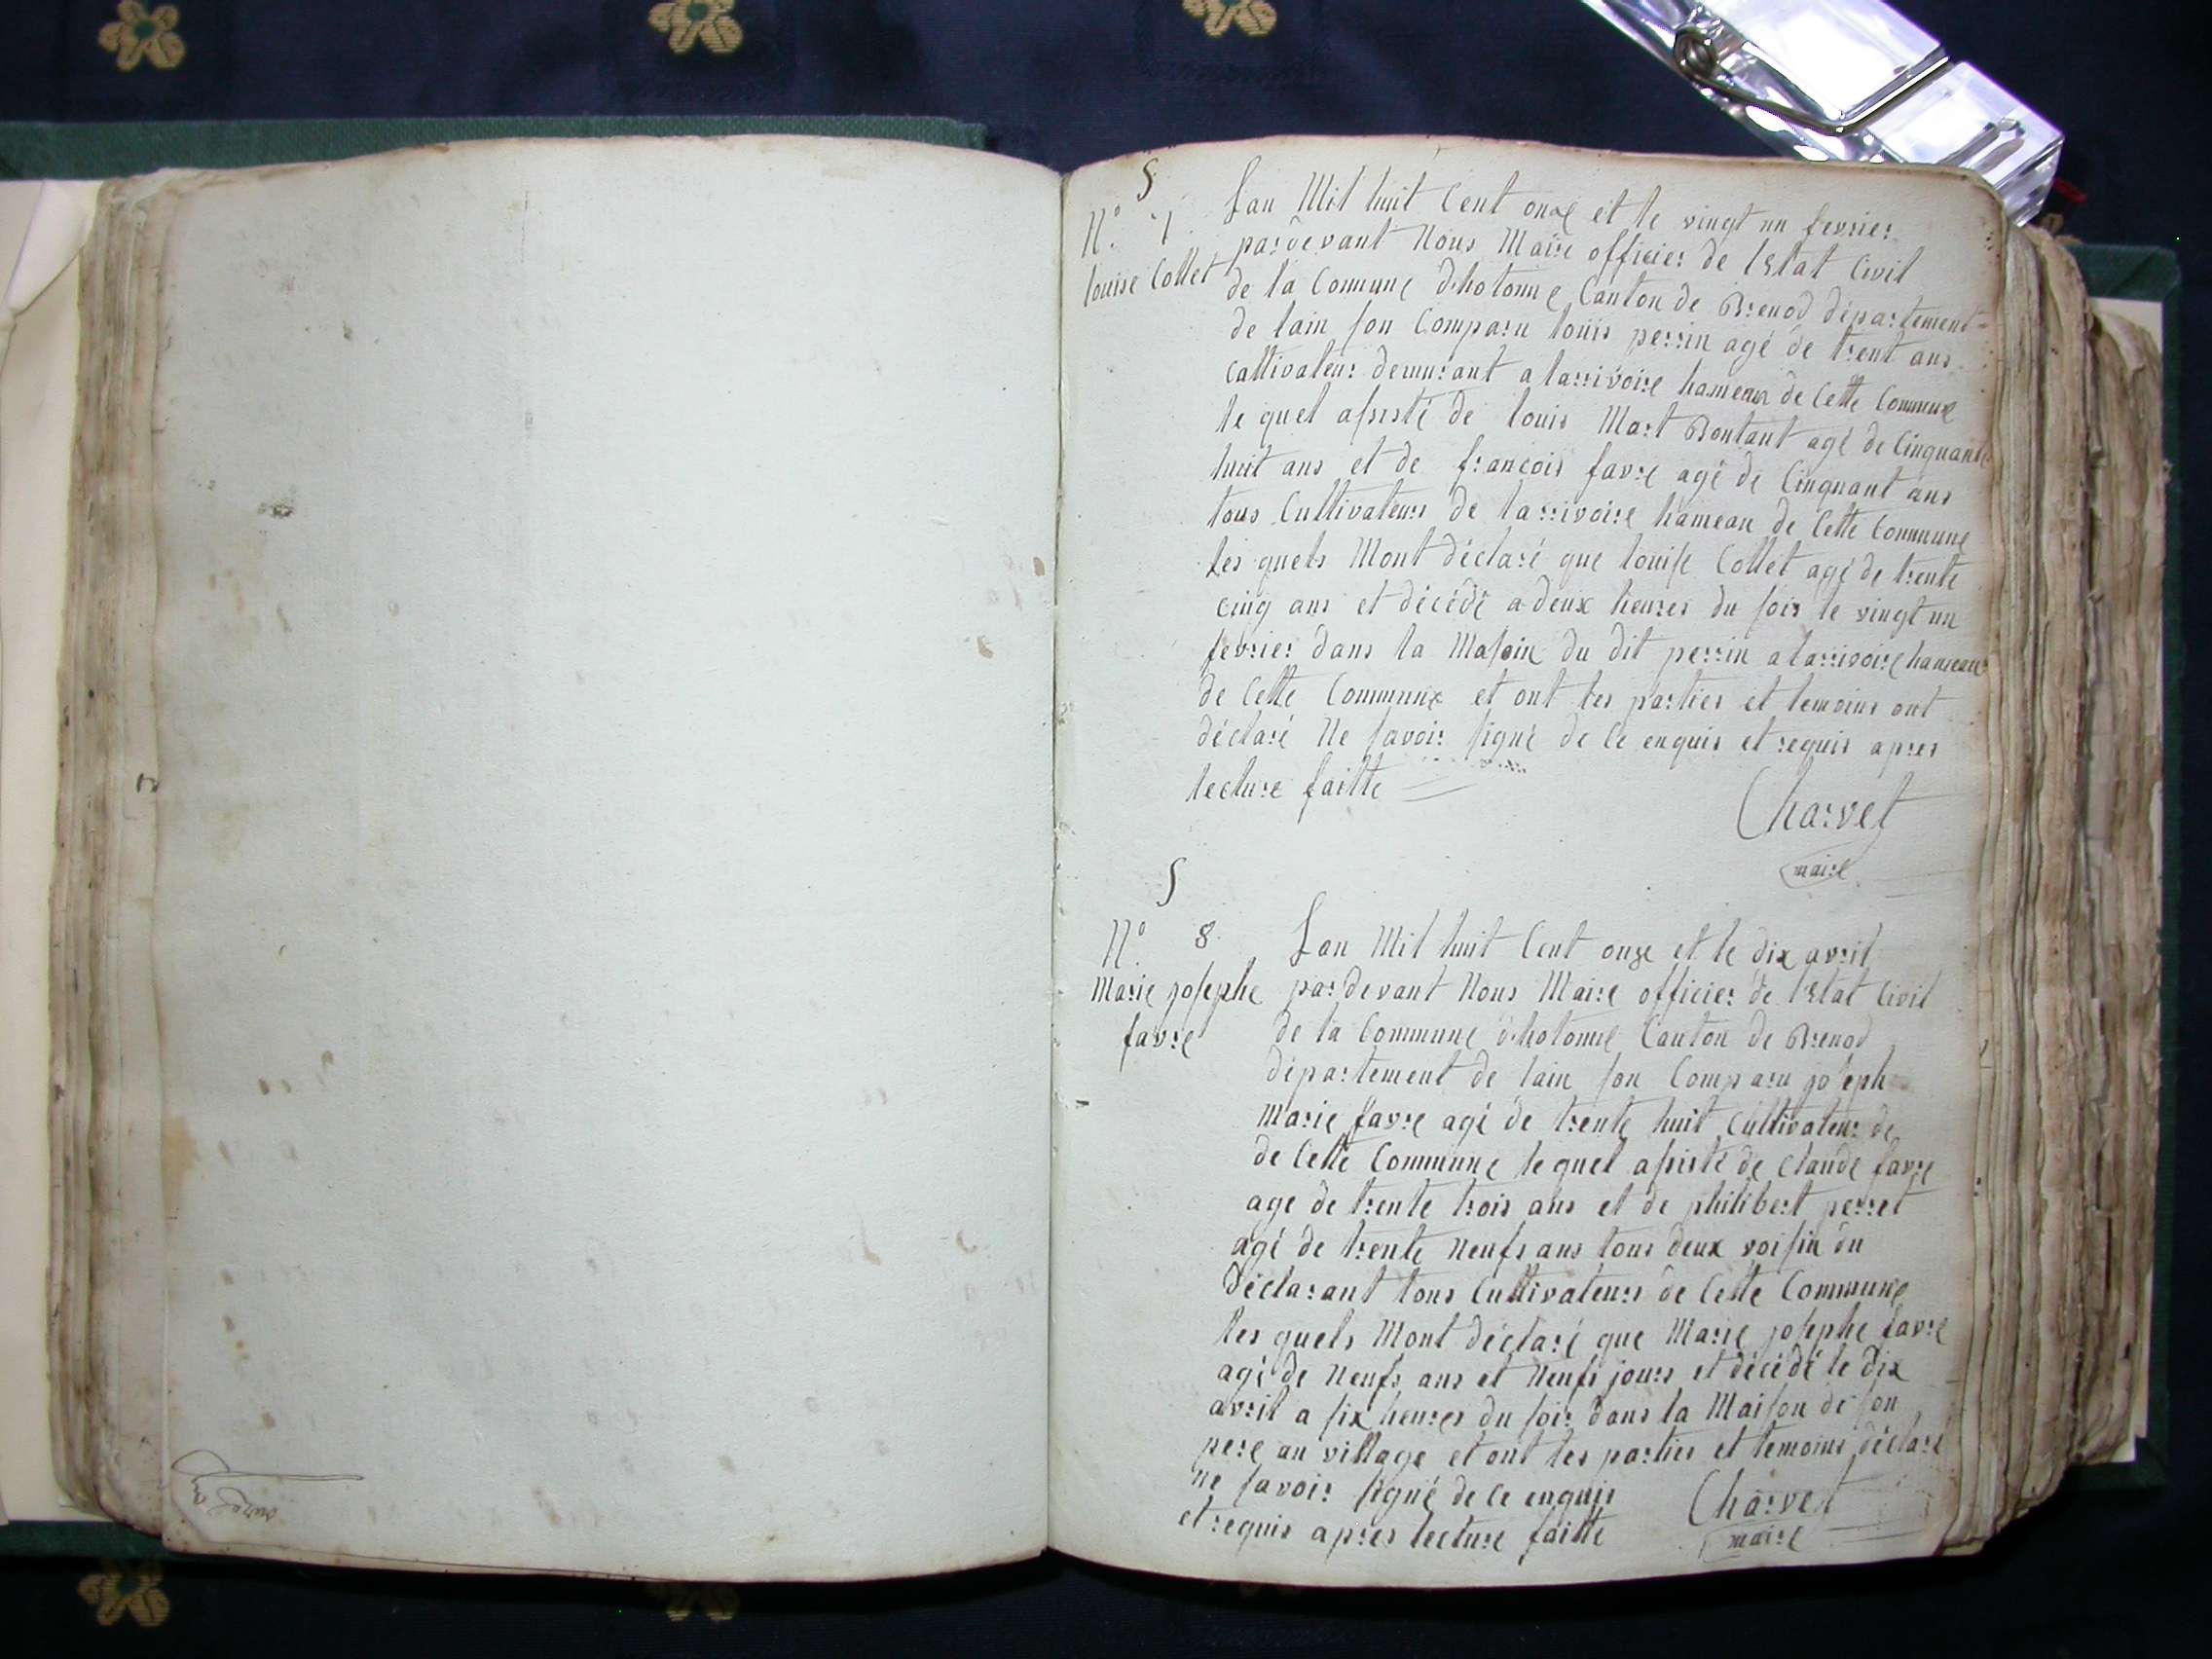 S
N.° 7.
louise Collet
Lan Mil huit Cent onze et le vingt un fevrier
pardevant Nous Maire officier de lEtat Civil
de la Commune d'hotonne Canton de Brenod département
de lain son Comparu louis perrin agé de trent ans
Cattivateur demurant a larrivoire hameau de Cette Commune
le quel assisté de louis Mart Bontant agé de Cinquante
huit ans et de francois favre agé de Cinquant ans
tous Cultivateurs de larrivoire hameau de Cette Commune
les quels Mont déclaré que louise Collet agé de trente
cinq ans et décédé a deux heures du soir le vingt un
fevrier dans la Masoin du dit perrin a larrivoire hameau
de Cette Commune et ont les parties et temoins ont
déclaré Ne savoir signé de Ce enquis et requis apres
lecture faitte
Charvet
maire
S
N.° 8.
Marie josephe
favre
Lan Mil huit Cent onze et le dix avril
pardevant Nous Maire officier de l'Etat Civil
de la Commune d'hotonne Canton de Brenod
département de lain son Comparu joseph
Marie favre agé de trente huit Cultivateur de
de Cette Commune le quel assisté de Claude favre
age de trente trois ans et de philibert perret
agé de trente Neufs ans tous deux voisin du
déclarant tous Cultivateurs de Cette Commune
les quels Mont déclaré que Marie josephe favre
agé de Neufs ans et Neufs jours et décédé le dix
avril a six heures du soir dans la Maison de son
pere au village et ont les parties et temoins déclaré
ne savoir signé de Ce enquis
et requis apres lecture faitte
Charvet
maire